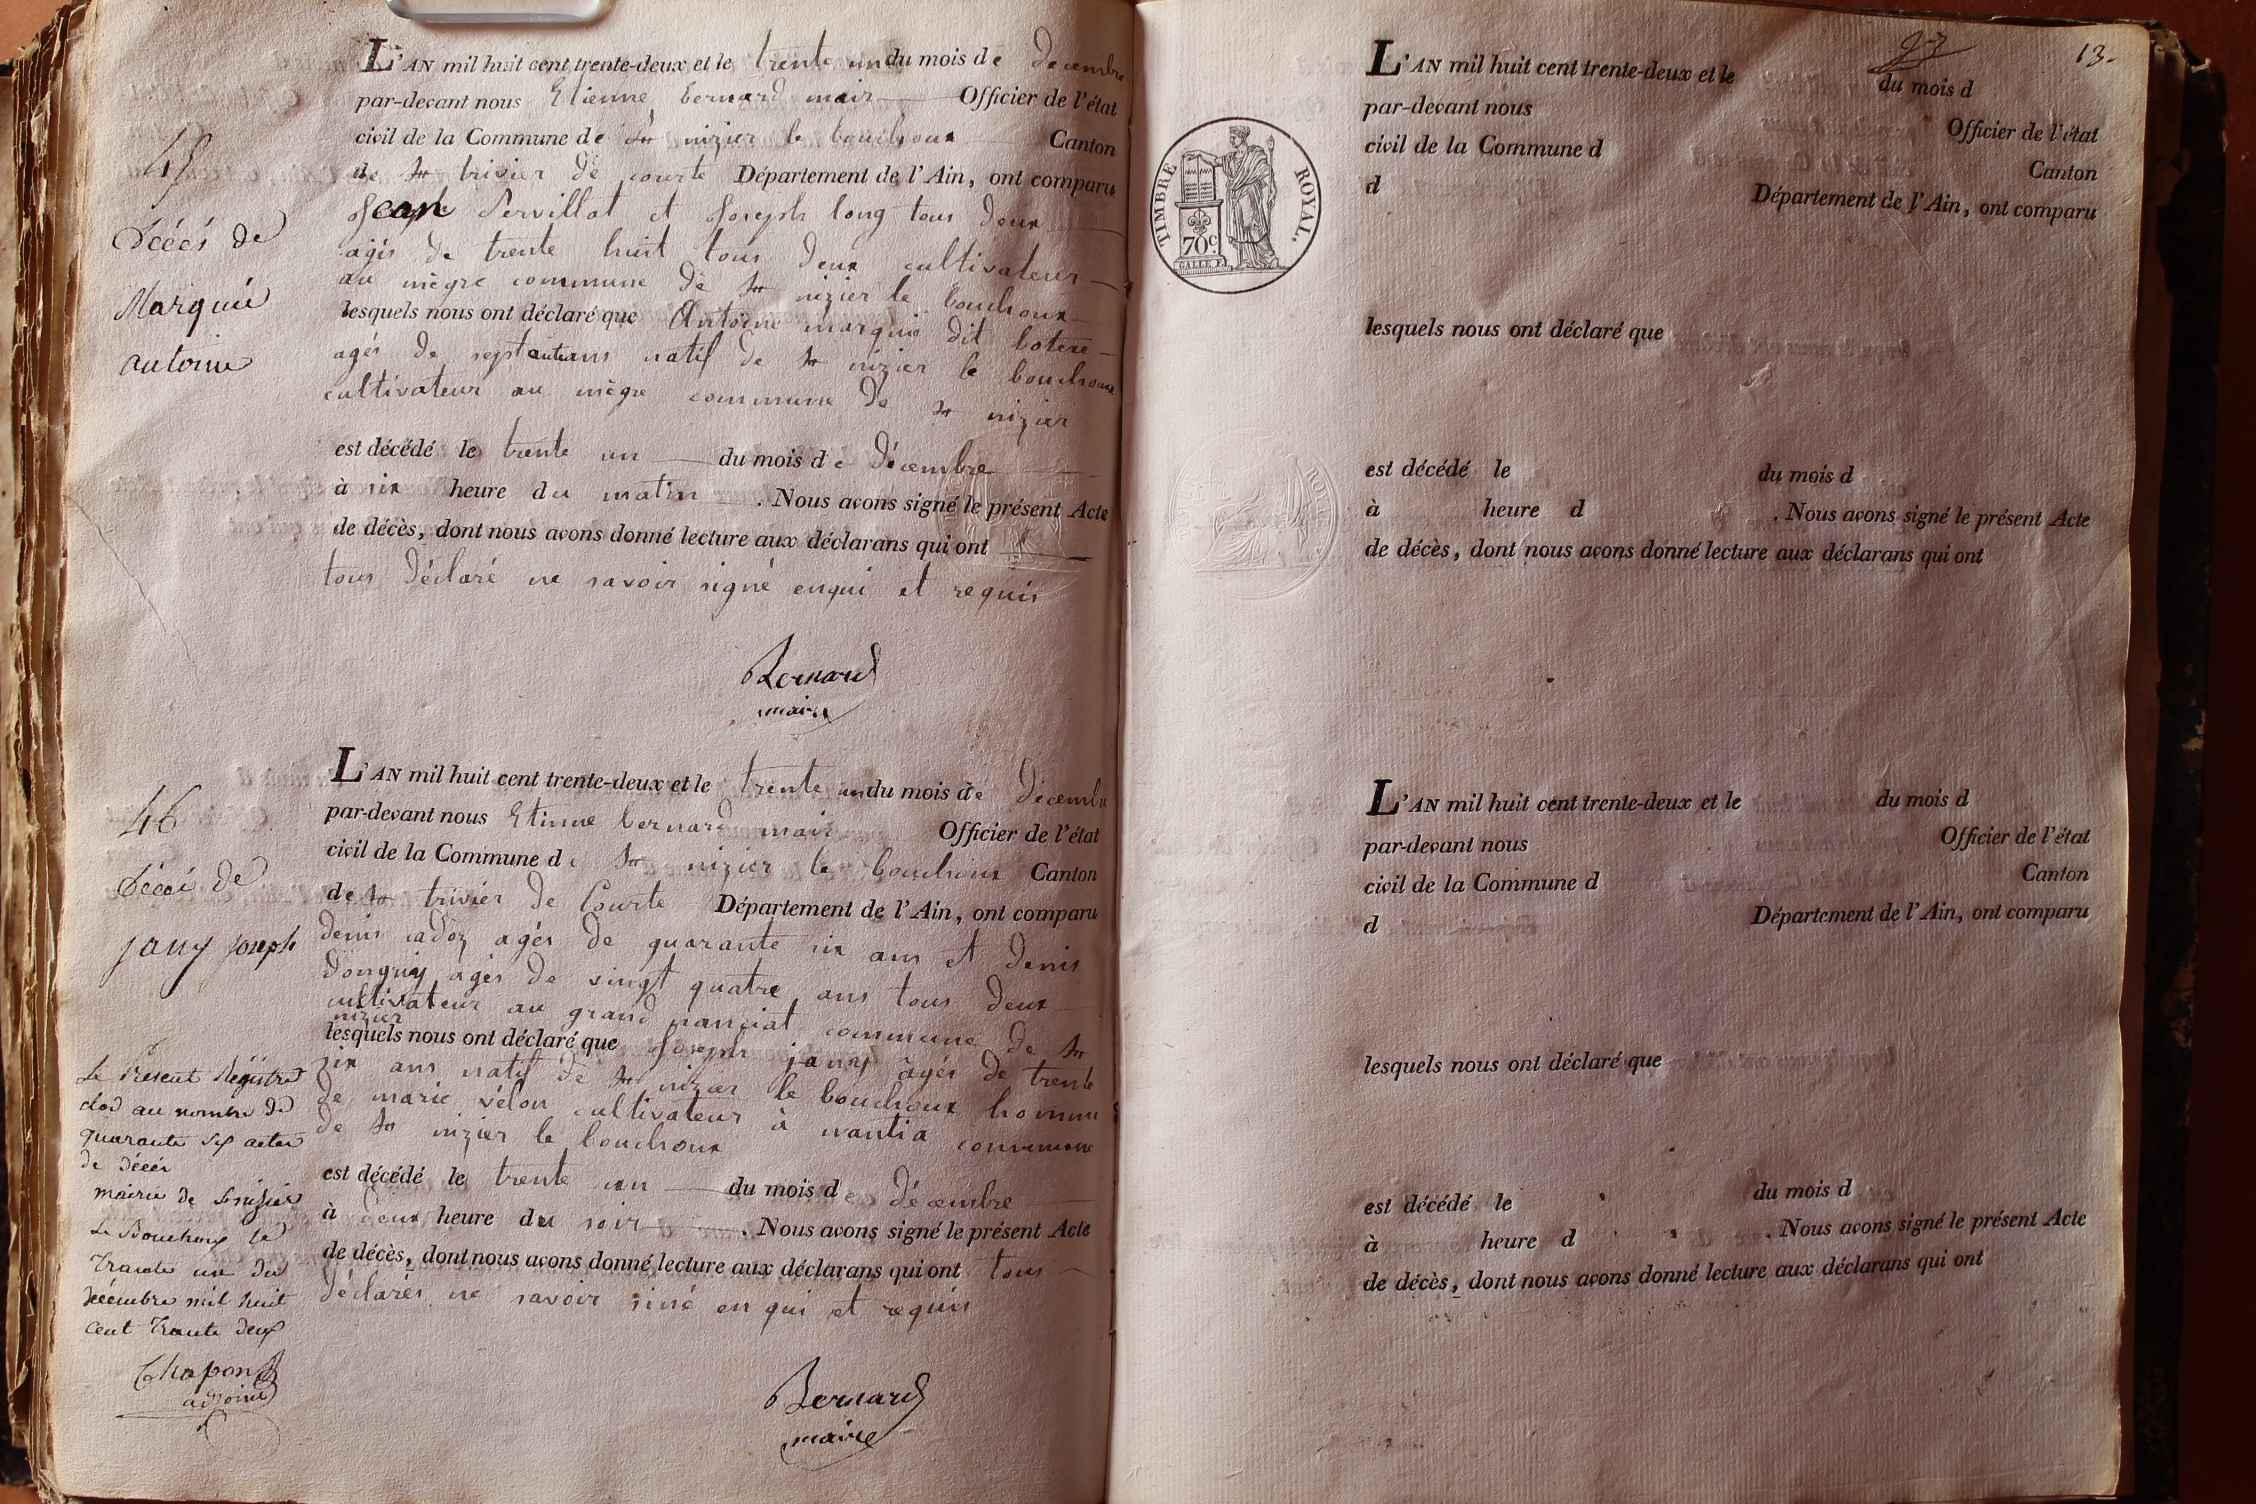 45
Décès de
Marquis
antoine
L'AN mil huit cent trente-deux et le trente un du mois de Decembre
par-devant nous Etienne bernard mair Officier de l'état
civil de la Commune de St nizier le bouchoux Canton
de St trivier de courte Département de l'Ain, ont comparu
Jean Servillat et Joseph long tous deux
agés de trente huit tous deux cultivateurs
au mègre commune de St nizier le bouchoux
lesquels nous ont déclaré que Antoine marquis dit
agés de septante ans natif de St nizier le bouchoux
cultivateur au mègre commune de St nizier
est décédé le trente un du mois de décembre
à six heure du matin . Nous avons signé le présent Acte
de décès, dont nous avons donné lecture aux déclarans qui ont
tous déclaré ne savoir signé enqui et requis
Bernard
maire
46
Décés de
jany joseph
L'AN mil huit cent trente-deux et le trente un du mois de Décembre
par-devant nous Etienne bernard mair Officier de l'état
civil de la Commune de St nizier le bouchoux Canton
de St trivier de Courte Département de l'Ain, ont comparu
denis cadoz agés de quarante six ans et denis
donguy agés de vingt quatre ans tous deux
cultivateur au grand nanciat commune de St
nizier
lesquels nous ont déclaré que Joseph jany âgés de trente
six ans natif de St nizier le bouchoux homme
de marie vélon cultivateur à nantia commune
de St nizier le bouchoux
est décédé le trente un du mois de décembre
à deux heure du soir . Nous avons signé le présent Acte
de décès, dont nous avons donné lecture aux déclarans qui ont tous
déclarés ne savoir siné en qui et requis
Bernard
maire
Le Présent Régistre
clos au nombre de
quarante six actes
de décés
mairie de St nizier
Le Bouchoux le
Trante un du
décembre mil huit
cent Trante deux
Chapon
adjoint
13.
TIMBRE ROYAL.
70 c.
L'AN mil huit cent trente-deux et le du mois d
par-devant nous Officier de l'état
civil de la Commune d Canton
d Département de l'Ain, ont comparu
lesquels nous ont déclaré que
est décédé le du mois d
à heure d . Nous avons signé le présent Acte
de décès, dont nous avons donné lecture aux déclarans qui ont
L'AN mil huit cent trente-deux et le du mois d
par-devant nous Officier de l'état
civil de la Commune d Canton
d Département de l'Ain, ont comparu
lesquels nous ont déclaré que
est décédé le du mois d
à heure d . Nous avons signé le présent Acte
de décès, dont nous avons donné lecture aux déclarans qui ont